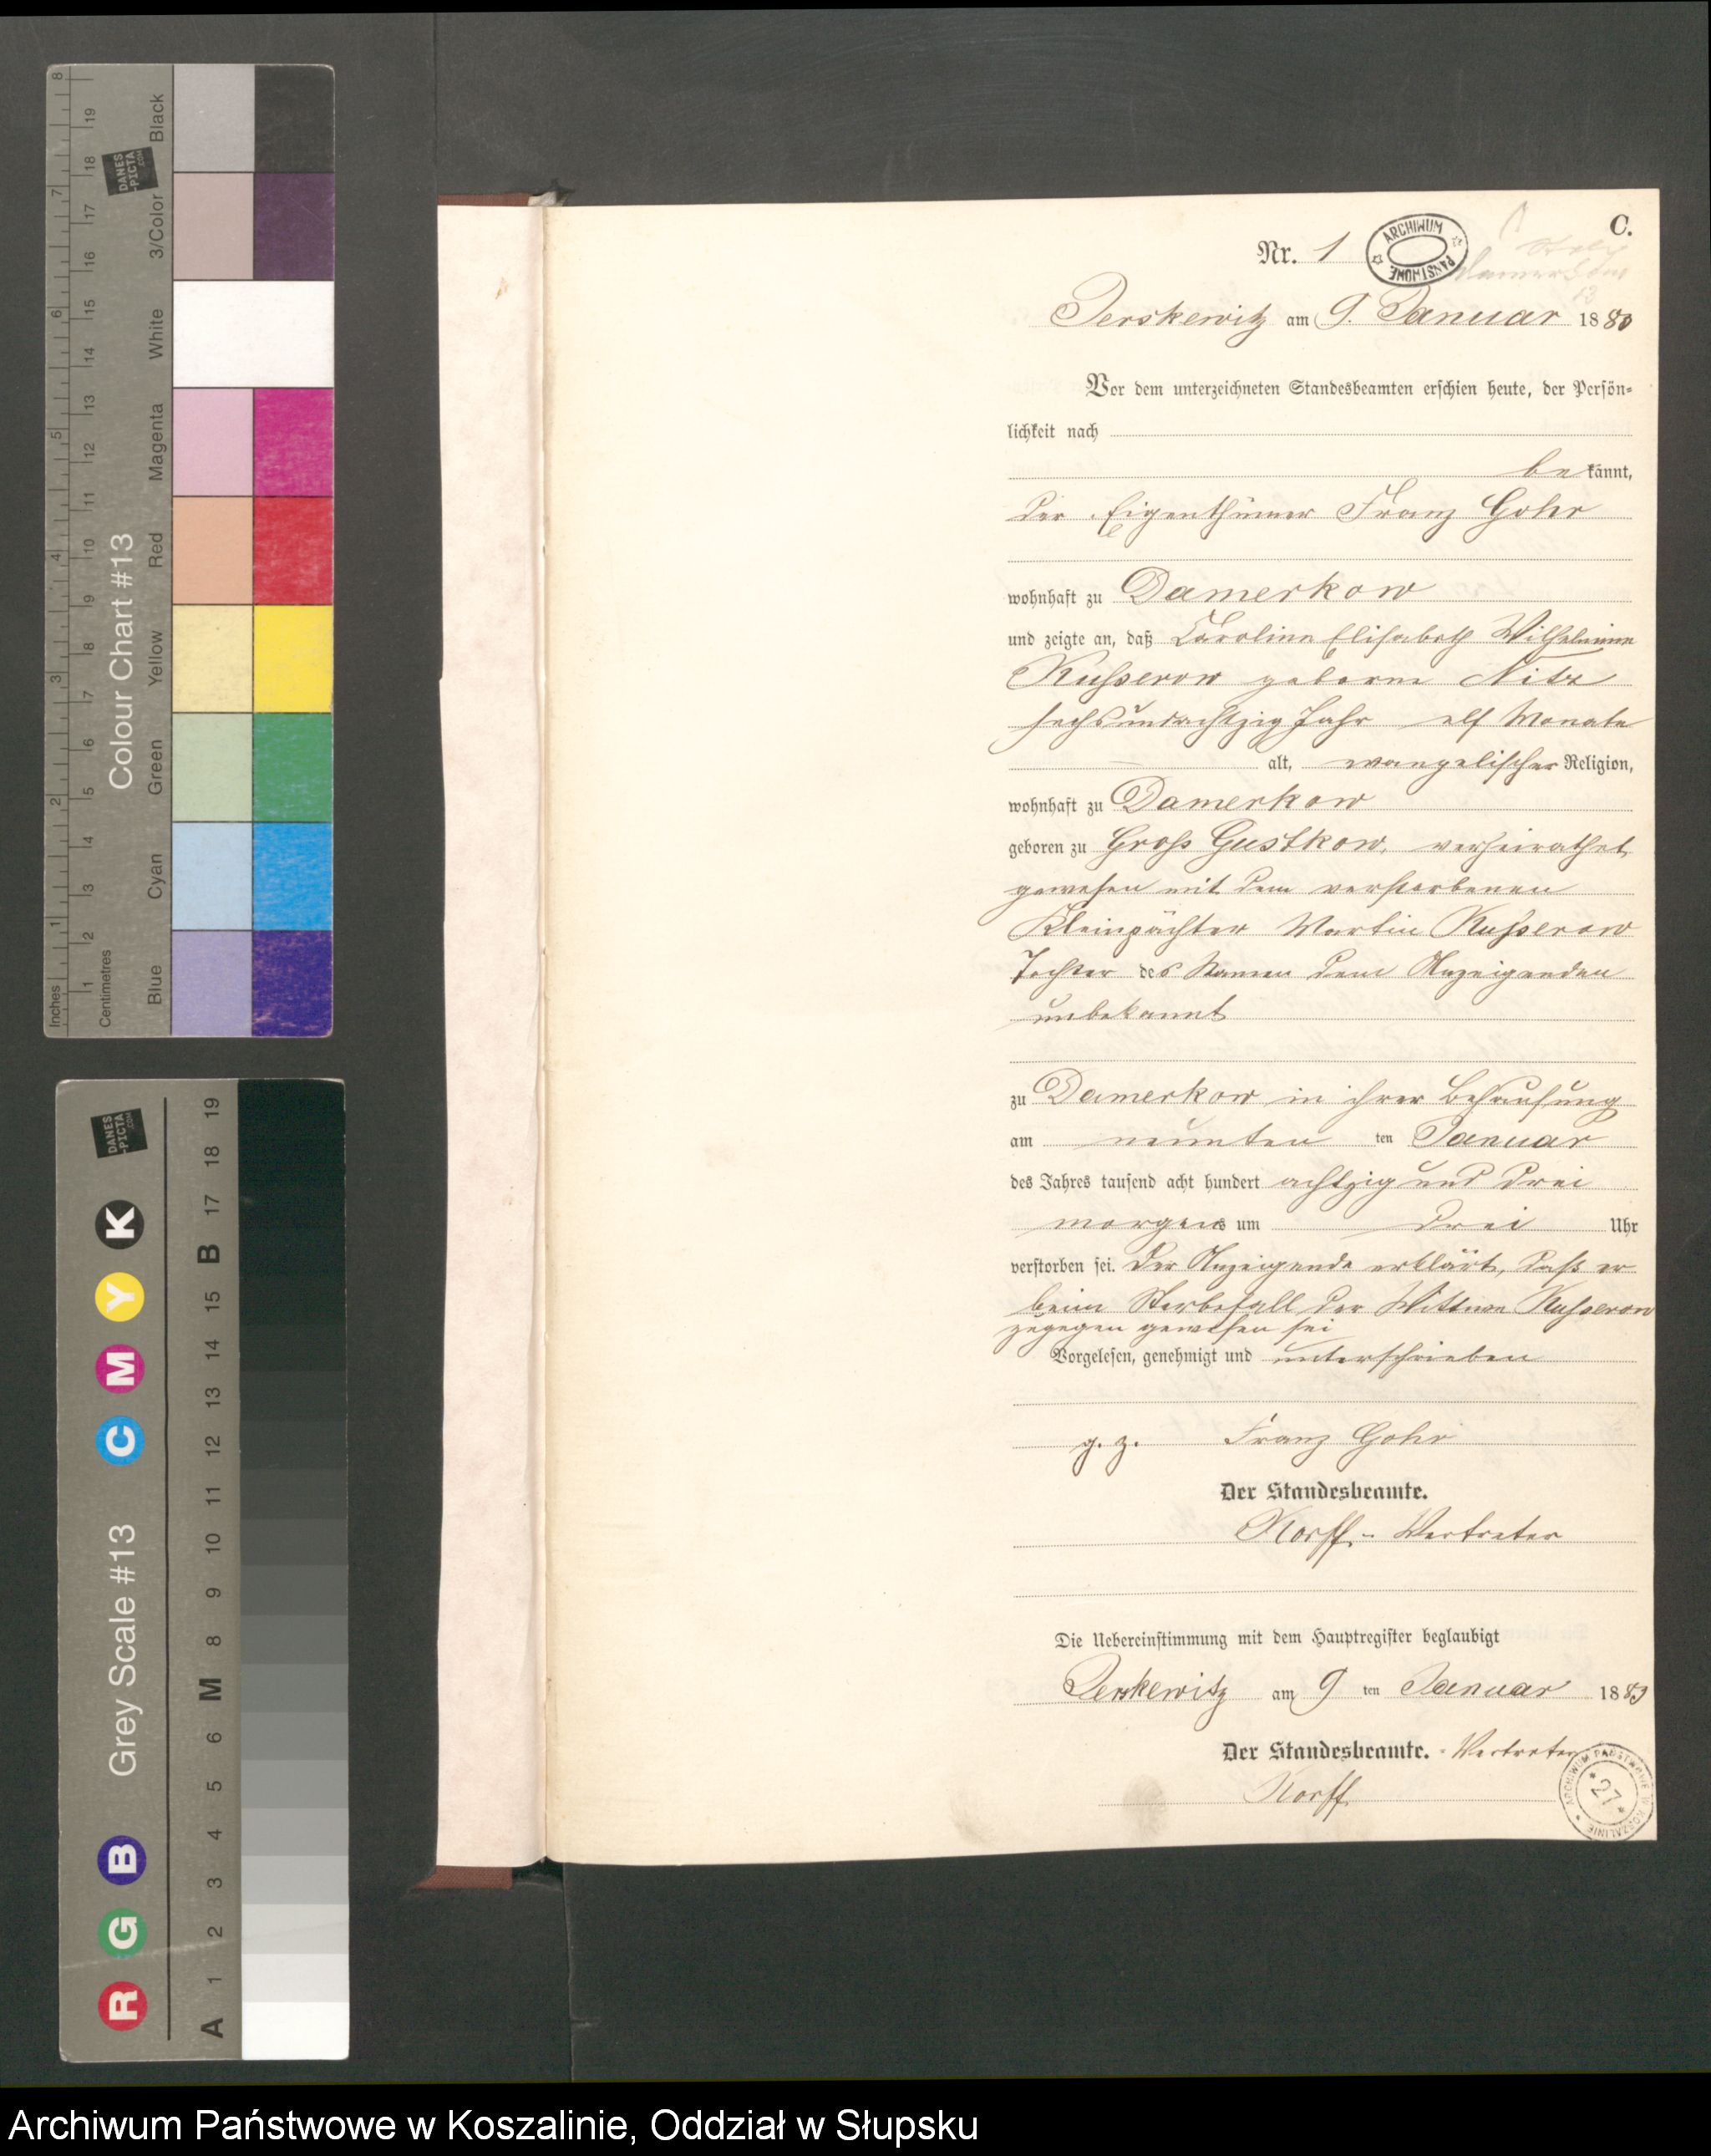 C.
Nr. 1
ARCHIWUM PAŃSTWOWE
Damerkow
Perskewitz am 9. Januar 1883
Vor dem unterzeichneten Standesbeamten erschien heute, der Persön-
lichkeit nach
be kannt,
der Eigenthümer Franz Gohr
wohnhaft zu Damerkow
und zeigte an, daß Caroline Elisabeth Wilhelmine
Kusserow geborne Nitz
sechsundachtzig Jahr elf Monate
alt, evangelischer Religion,
wohnhaft zu Damerkow
geboren zu Groß Gustkow, verheirathet
gewesen mit dem verstorbenen
Kleinpächter Martin Kusserow
Tochter des Namen dem Anzeigenden
unbekannt
zu Damerkow in ihrer Behausung
am neunten ten Januar
des Jahres tausend acht hundert achtzig und drei
morgens um drei Uhr
verstorben sei. Der Anzeigende erklärt, daß er
beim Sterbefall der Wittwe Kusserow
zugegen gewesen sei
Vorgelesen, genehmigt und unterschrieben
g. z. Franz Gohr
Der Standesbeamte.
Korff - Vertreter
Die Uebereinstimmung mit dem Hauptregister beglaubigt
Perskewitz am 9 ten Januar 1883
Der Standesbeamte. - Vertreter
Korff
ARCHIWUM PAŃSTWOWE W KOSZALINIE
* 27 *
Inches
1 2 3 4 5 6 7 8
Centimetres
1 2 3 4 5 6 7 8 9 10 11 12 13 14 15 16 17 18 19
Colour Chart #13
DANES
-PICTA
.COM
Blue Cyan Green Yellow Red Magenta White 3/Color Black
Grey Scale #13
R G B C M Y K
DANES
-PICTA
.COM
A 1 2 3 4 5 6 M 8 9 10 11 12 13 14 15 B 17 18 19
Archiwum Państwowe w Koszalinie, Oddział w Słupsku